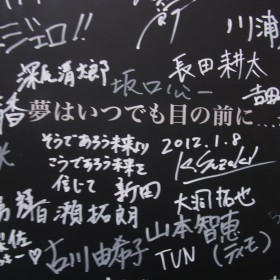 ジェロ!!
川浦
深尾清太郎
坂口
長田耕太
夢はいつでも目の前に……
そうであろう未来より
こうであろう未来を
信じて 新田
2012.1.8
K.Suzuki
大洞拓也
百瀬拓朗
古川由希子
山本智恵
TUN (ティモ)